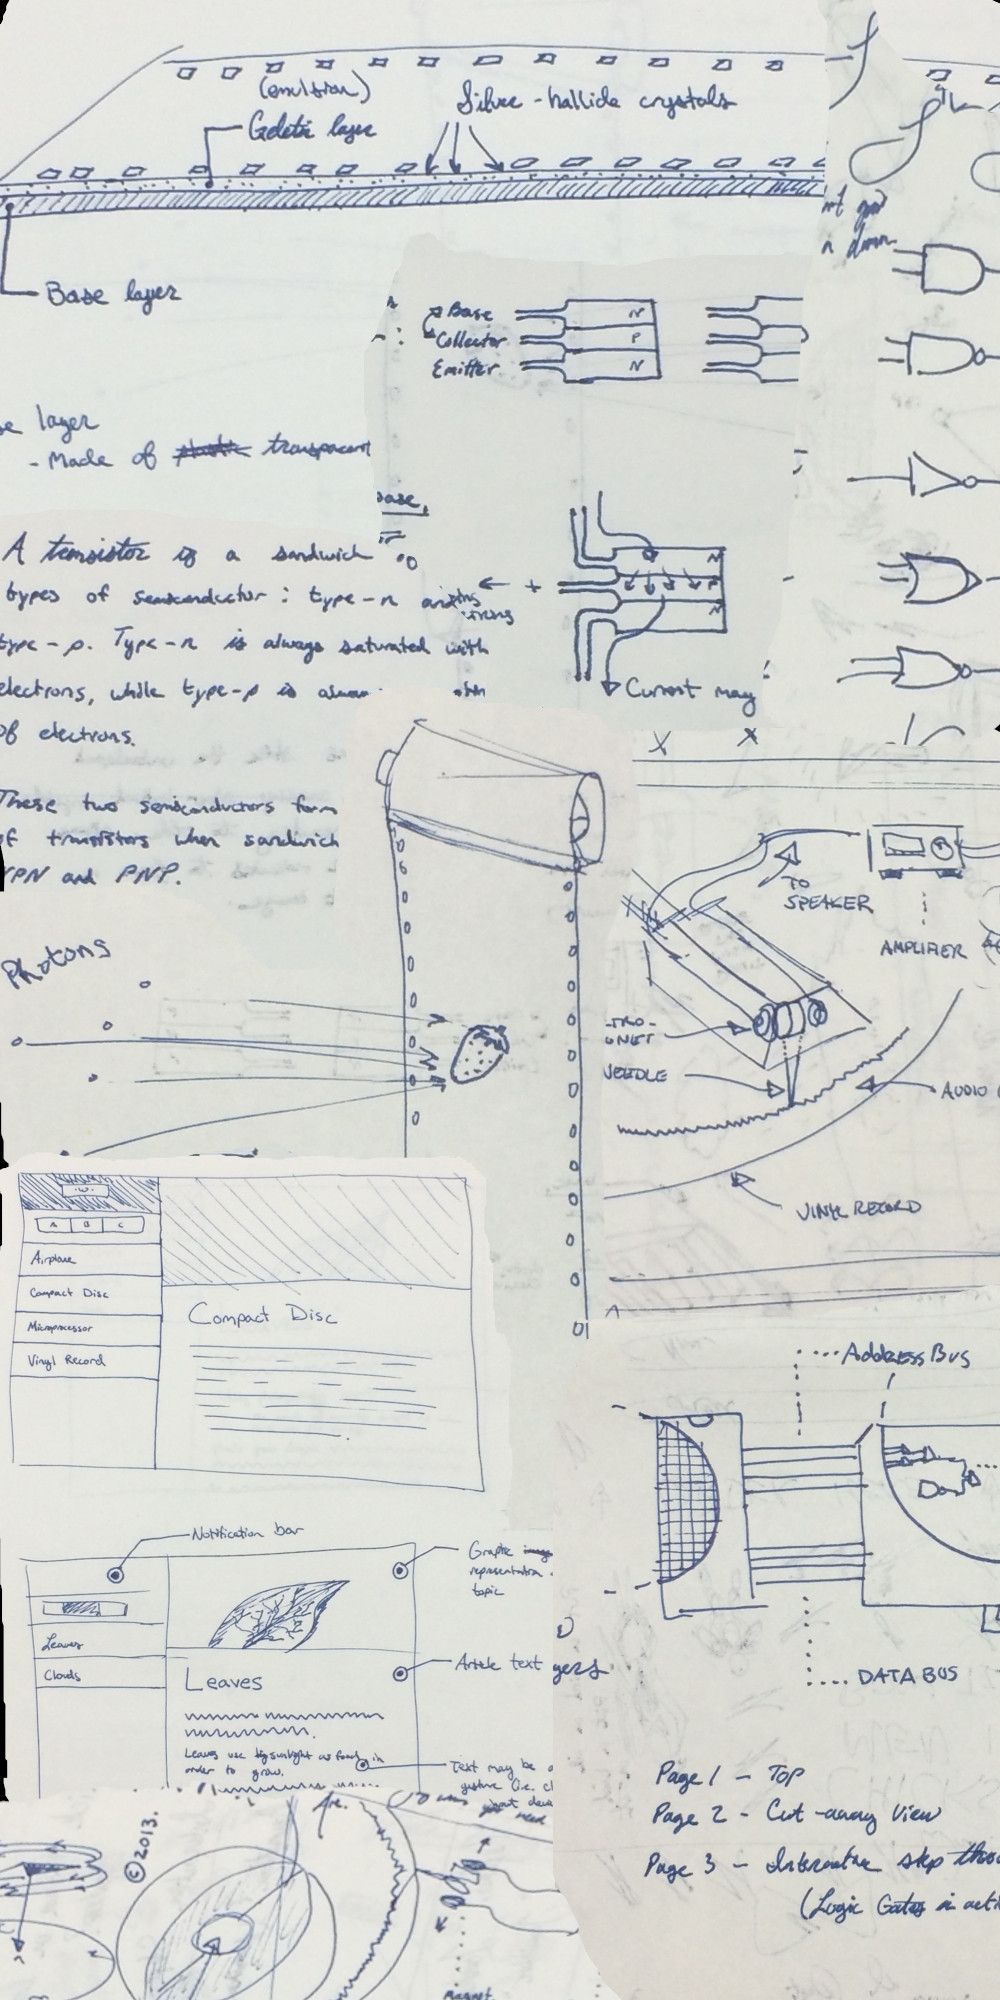 (emulsion)
Silver-hallide crystals
Gelatin layer
Base layer
Base
Collector
Emitter
N
P
N
layer
- Made of plastic transparent
A transistor is a sandwich
types of semiconductor: type-n and
type-p. Type-n is always saturated with
electrons, while type-p is
of electrons.
+
N
P
N
Current may
These two semiconductors form
of transistors when sandwich
NPN and PNP.
Photons
TO
SPEAKER
AMPLIFIER
NEEDLE
AUDIO
VINYL RECORD
A B C
Airplane
Compact Disc
Microprocessor
Vinyl Record
Compact Disc
Address Bus
DATA BUS
Notification bar
Graphic
representation
topic
Leaves
Clouds
Leaves
Article text
Leaves use sunlight as food in
order to grow.
Text may be
Page 1 - Top
Page 2 - Cut-away View
Page 3 - Interactive step
(Logic Gates in
©2013.
Magnet